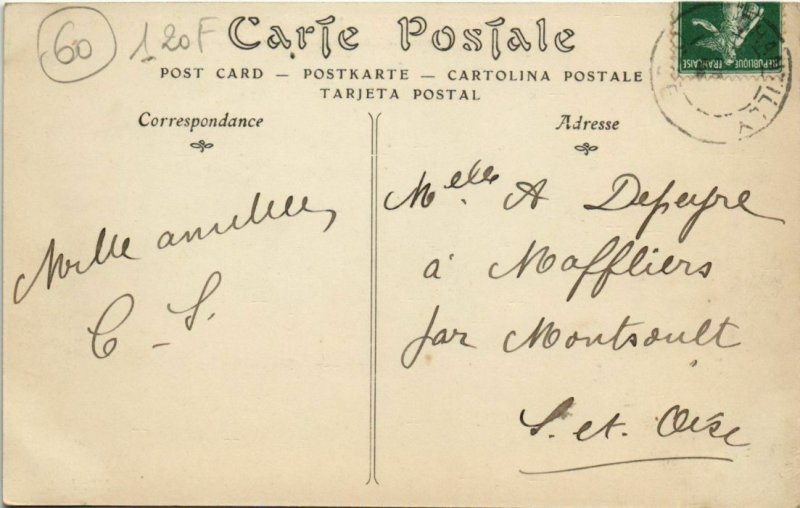 60
1,20F
Carte Postale
POST CARD — POSTKARTE — CARTOLINA POSTALE
TARJETA POSTAL
Correspondance
Mille amitiés,
C - S.
Adresse
Melle A Depeyre
à Maffliers
par Montsoult
S. et. Oise
REPUBLIQUE FRANÇAISE